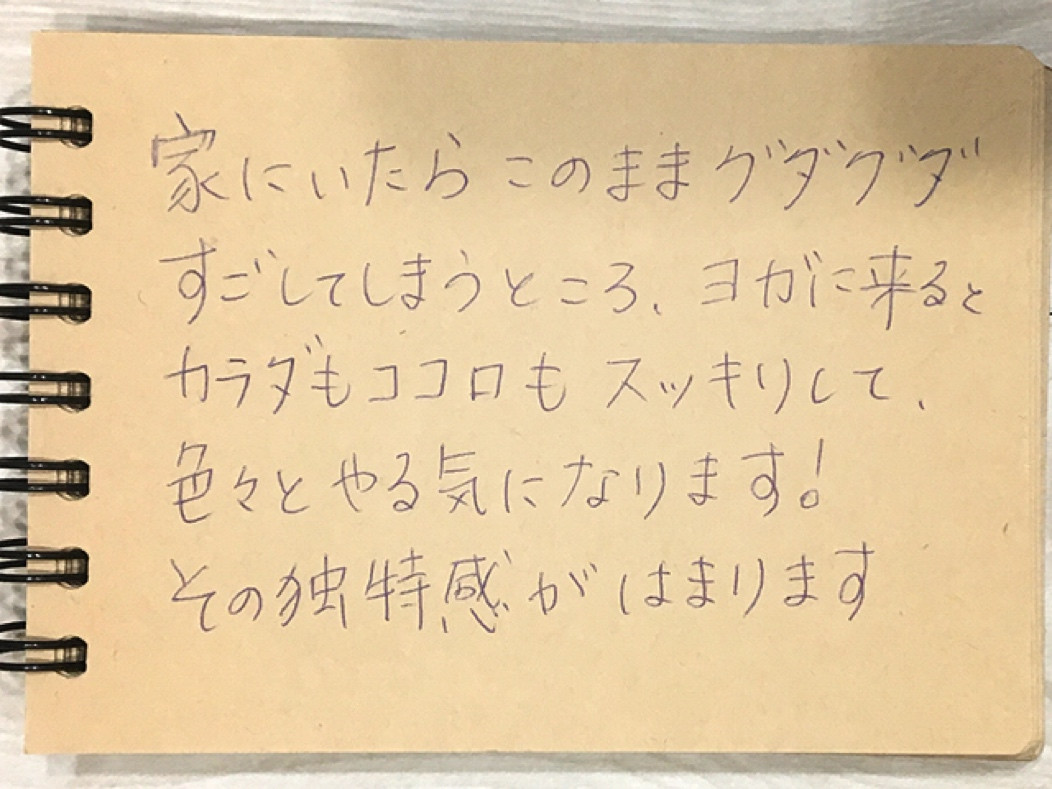 家にいたらこのままグダグダ
すごしてしまうところ、ヨガに来ると
カラダもココロもスッキリして、
色々とやる気になります!
その独特感がはまります